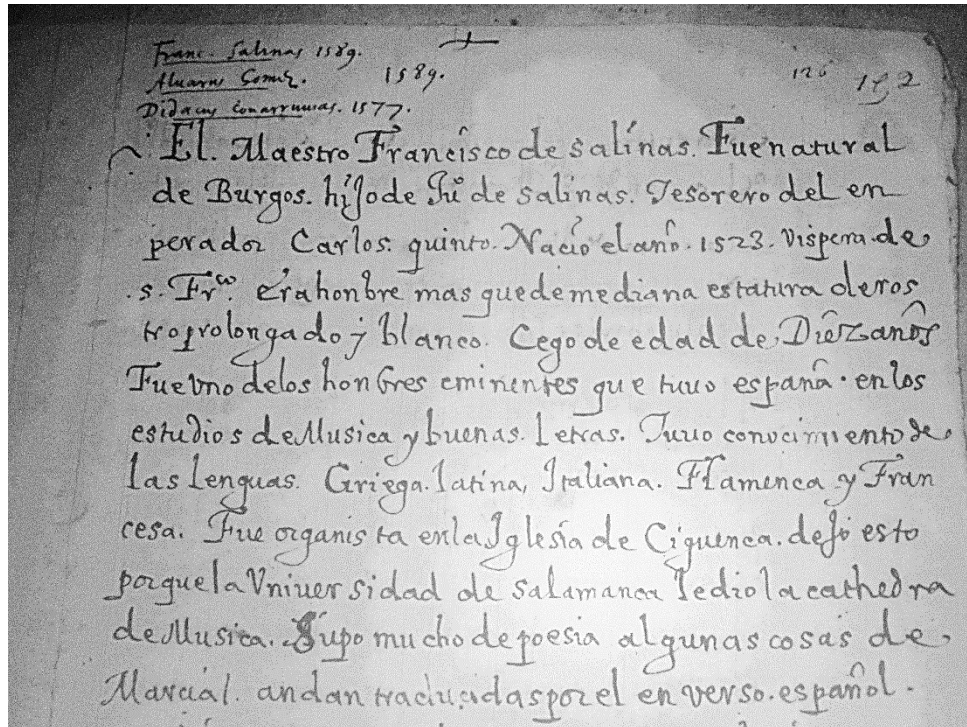 Franc. Salinas 1589.
Aluarus Gomez. 1589.
Didacus Couarruuias. 1577.
126 152
El. Maestro Francisco de salínas. Fue natural
de Burgos. híjo de Juº de salinas. Tesorero del en
perador Carlos. quinto. Nacío el anô. 1523. vispera. de
.s. Frco. érahonbre mas que de mediana estatura de ros
tro prolongado ẏ blanco. Cego de edad de, Diêz anôs
Fue vno delos honbres eminentes que tuuo espanâ. en los
estudios de Musica y buenas. Letras. Tuuo conocimiento de
las lenguas. Griega. latina, Italiana. Flamenca y Fran
cesa. Fue organista en la Iglesía de Ciguenca. dejo esto
porque la Vniuersidad de Salamanca le dio la cathedra
de Musica. Supo mucho de poesia algunas cosas de
Marcíal. andan traducidas por el en verso. espanôl.